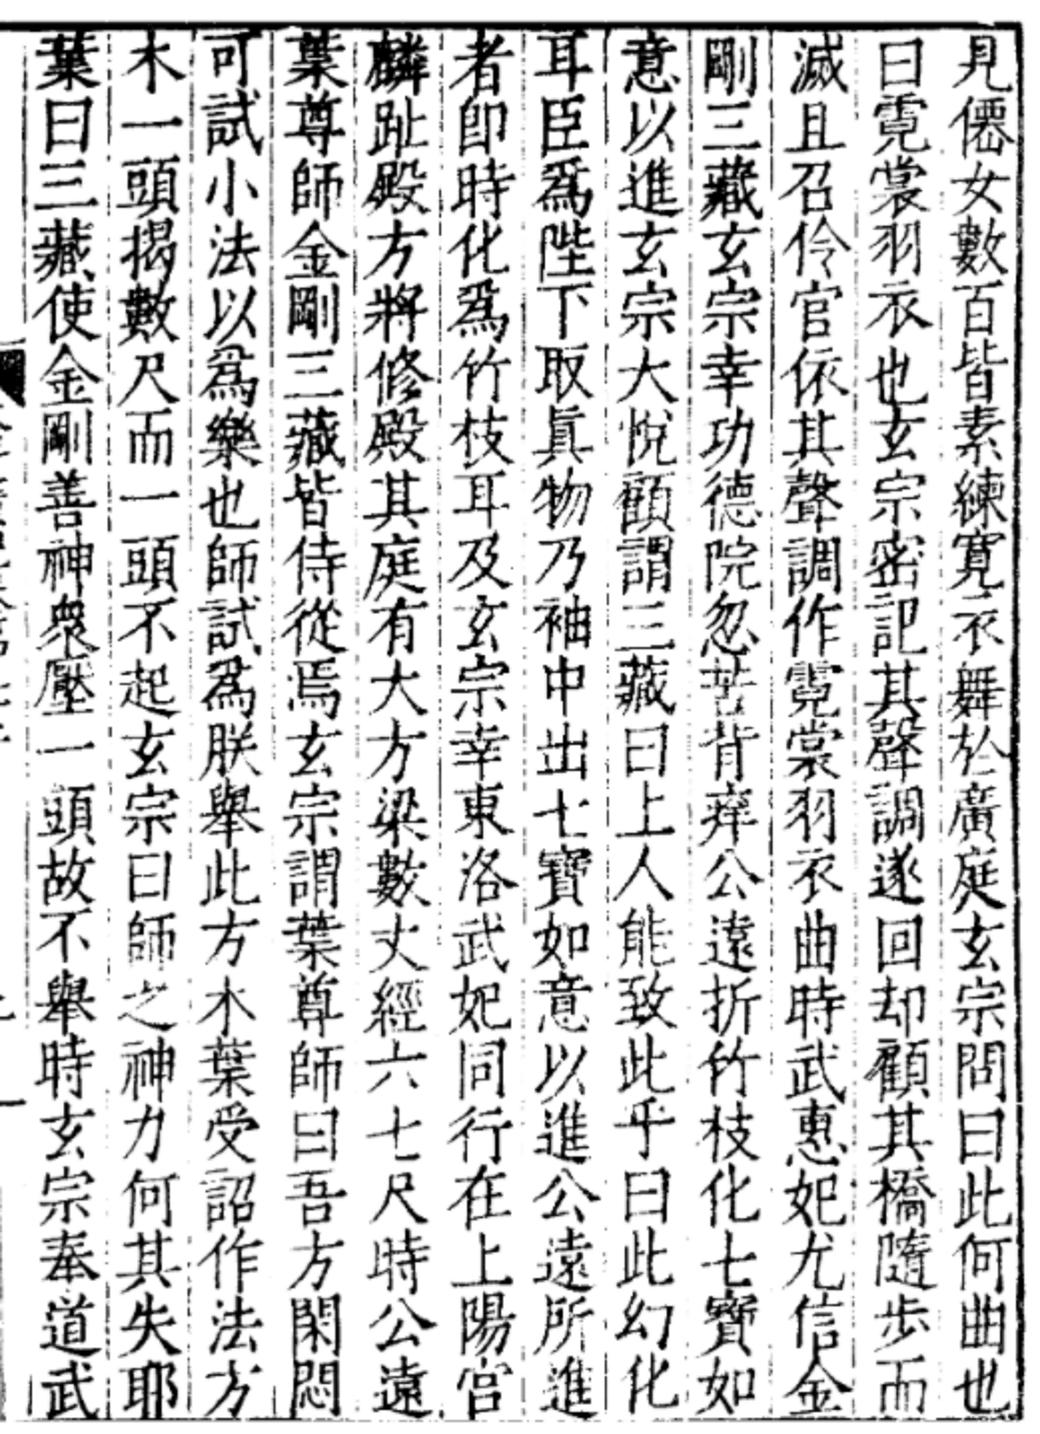 見僊女數百皆素練寛衣舞於廣庭玄宗問曰此何曲也
曰霓裳羽衣也玄宗密記其聲調遂回却顧其橋隨步而
滅且召伶官依其聲調作霓裳羽衣曲時武惠妃尤信金
剛三藏玄宗幸功德院忽苦背痒公遠折竹枝化七寶如
意以進玄宗大悅顧謂三藏曰上人能致此乎曰此幻化
耳臣爲陛下取眞物乃袖中出七寶如意以進公遠所進
者卽時化爲竹枝耳及玄宗幸東洛武妃同行在上陽宮
麟趾殿方將修殿其庭有大方梁數丈經六七尺時公遠
葉尊師金剛三藏皆侍從焉玄宗謂葉尊師曰吾方閑悶
可試小法以爲樂也師試爲朕舉此方木葉受詔作法方
木一頭揭數尺而一頭不起玄宗曰師之神力何其失耶
葉曰三藏使金剛善神衆壓一頭故不舉時玄宗奉道武